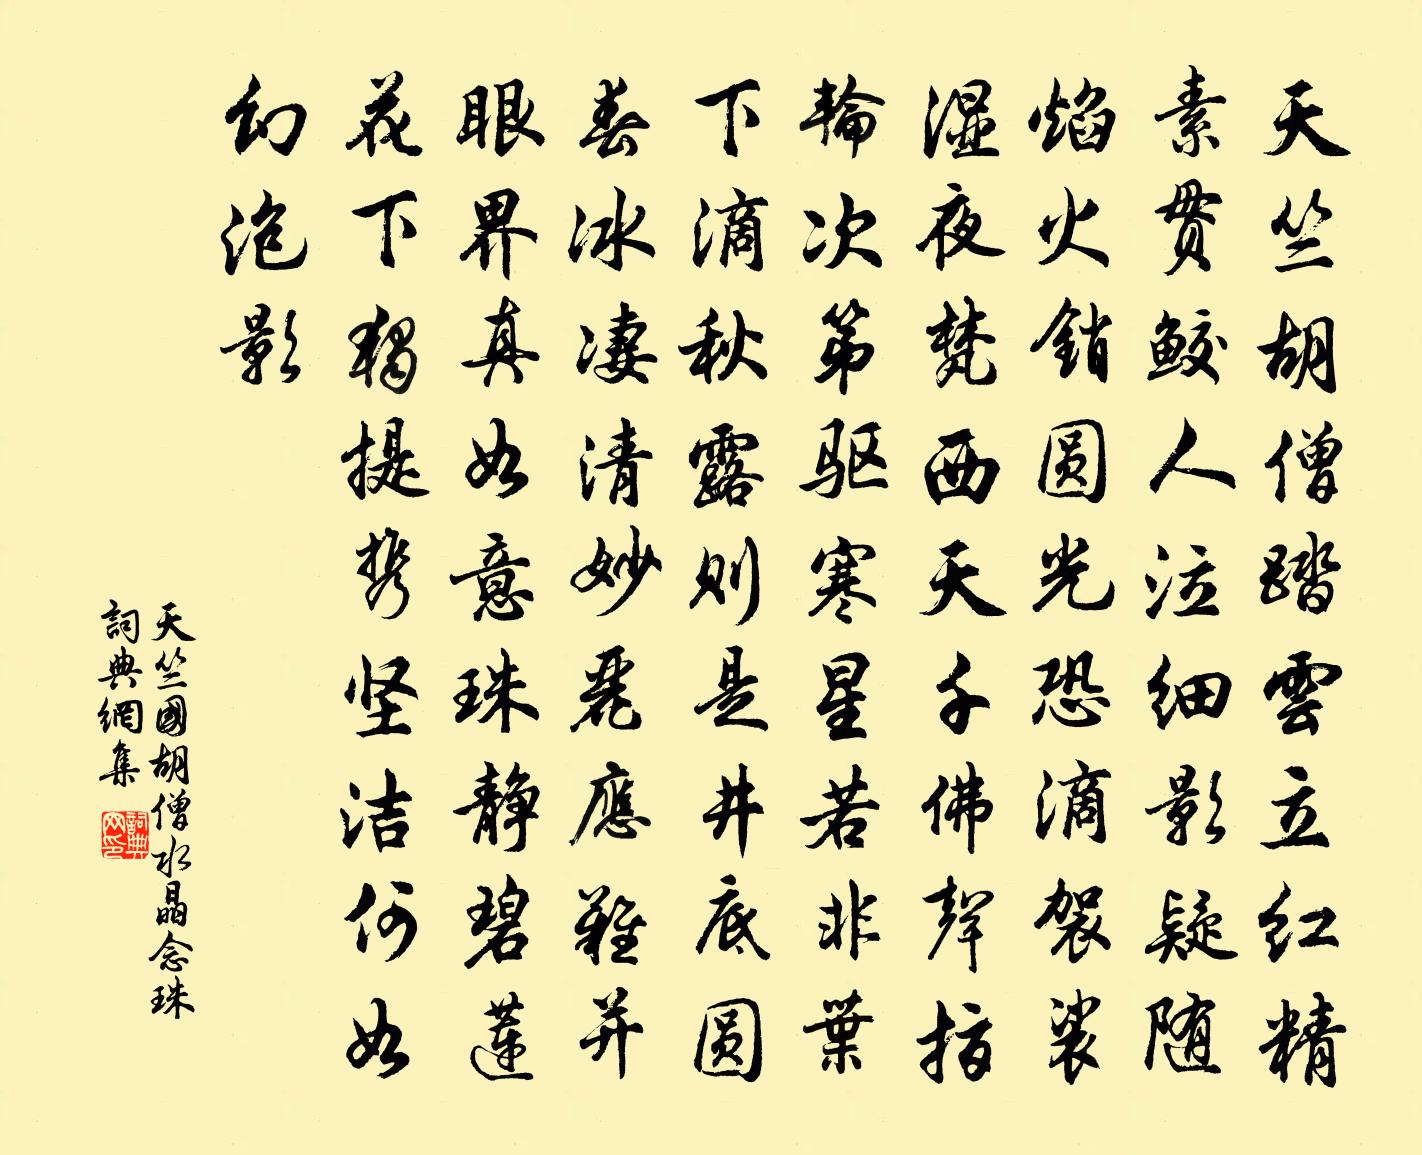 天竺胡僧踏雲立红精
素贯鲛人泣细影疑随
焰火銷圆光恐滴袈裟
湿夜梵西天千佛聲指
輪次第驱寒星若非葉
下滴秋露则是井底圆
春冰凄清妙麗應難并
眼界真如意珠静碧蓮
花下獨提携坚洁何如
幻泡影
天竺國胡僧水晶念珠
詞典網集
詞典网印